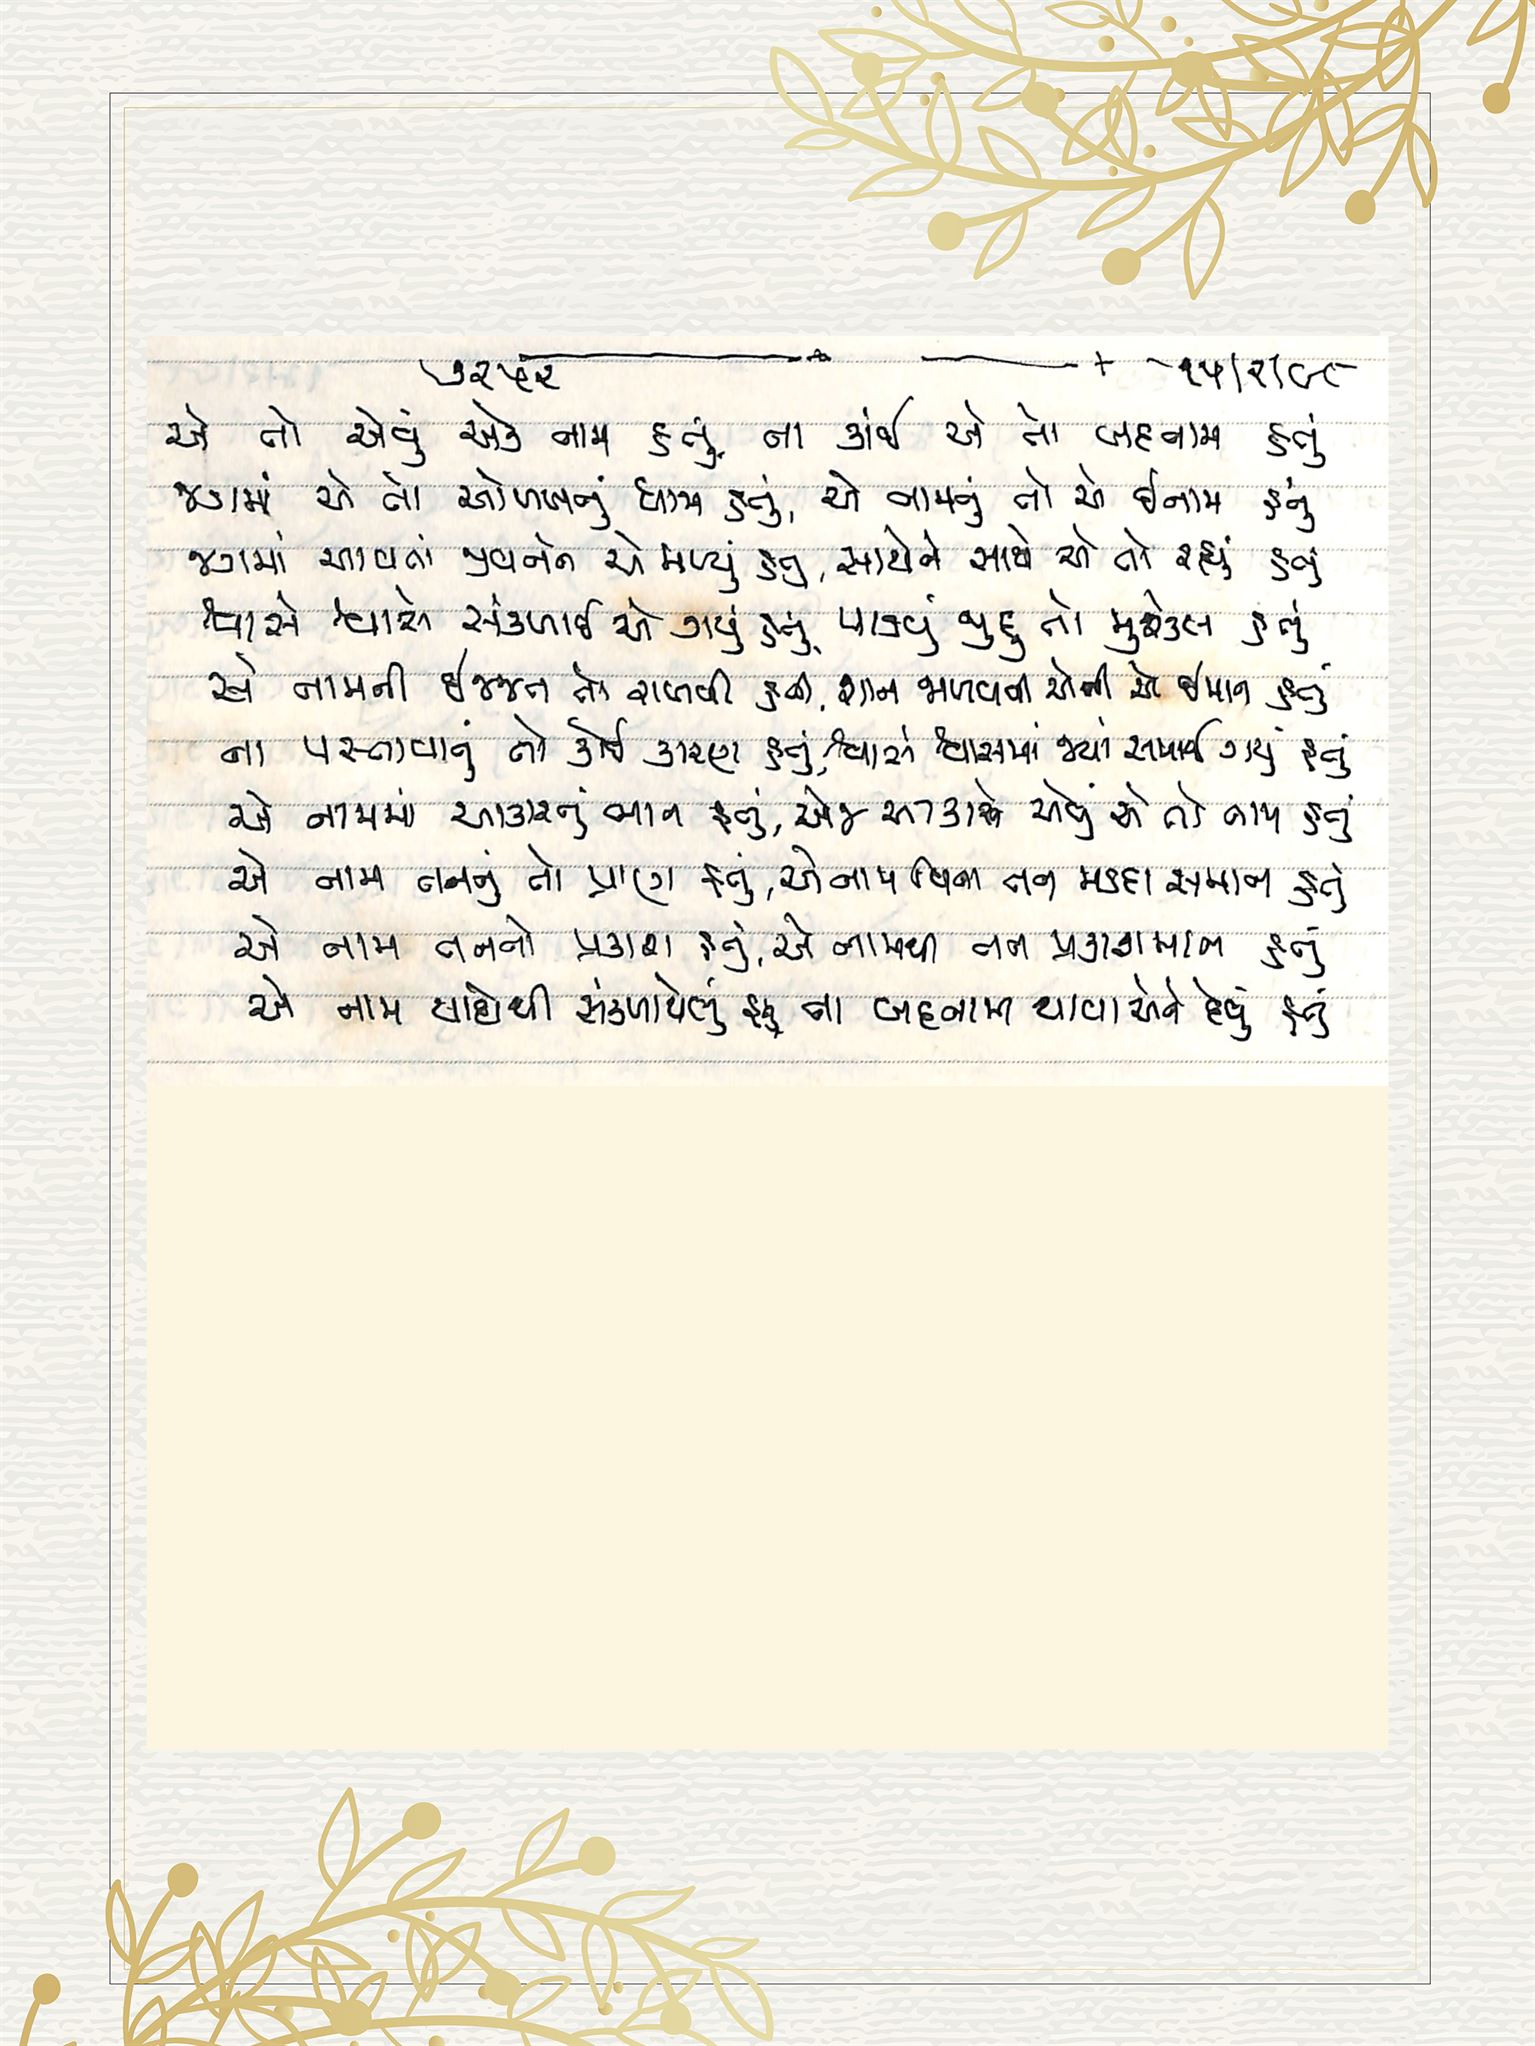 એ તો એવું એક નામ હતું, ના કાંઈ એ તો બદનામ હતું
જગમાં એ તો ઓળખનું ધામ હતું, એ નામનું તો એ ઈનામ હતું
જગમાં આવતાં જીવનને એ મળ્યું હતું, સાથેને સાથે એ તો રહ્યું હતું
શ્વાસે શ્વાસે સંકળાઈ એ ગયું હતું, પાડવું જુદું તો મુશ્કેલ હતું
એ નામની ઈજ્જત તો રાખવી હતી, શાન જાળવવી એની એ ઈમાન હતું
ના પસ્તાવાનું તો કોઈ કારણ હતું, શ્વાસે શ્વાસમાં જ્યાં સમાઈ ગયું હતું
એ નામમાં આકારનું ભાન હતું, એજ આકારે એવું એ તો નામ હતું
એ નામ તનનું તો પ્રાણ હતું, એ નામ વિના તન મડદા સમાન હતું
એ નામ તનનો પ્રકાશ હતું, એ નામથી તન પ્રકાશમાન હતું
એ નામ સાથેથી સંકળાયેલું હતું ના બદનામ થાવા એને દેવું હતું